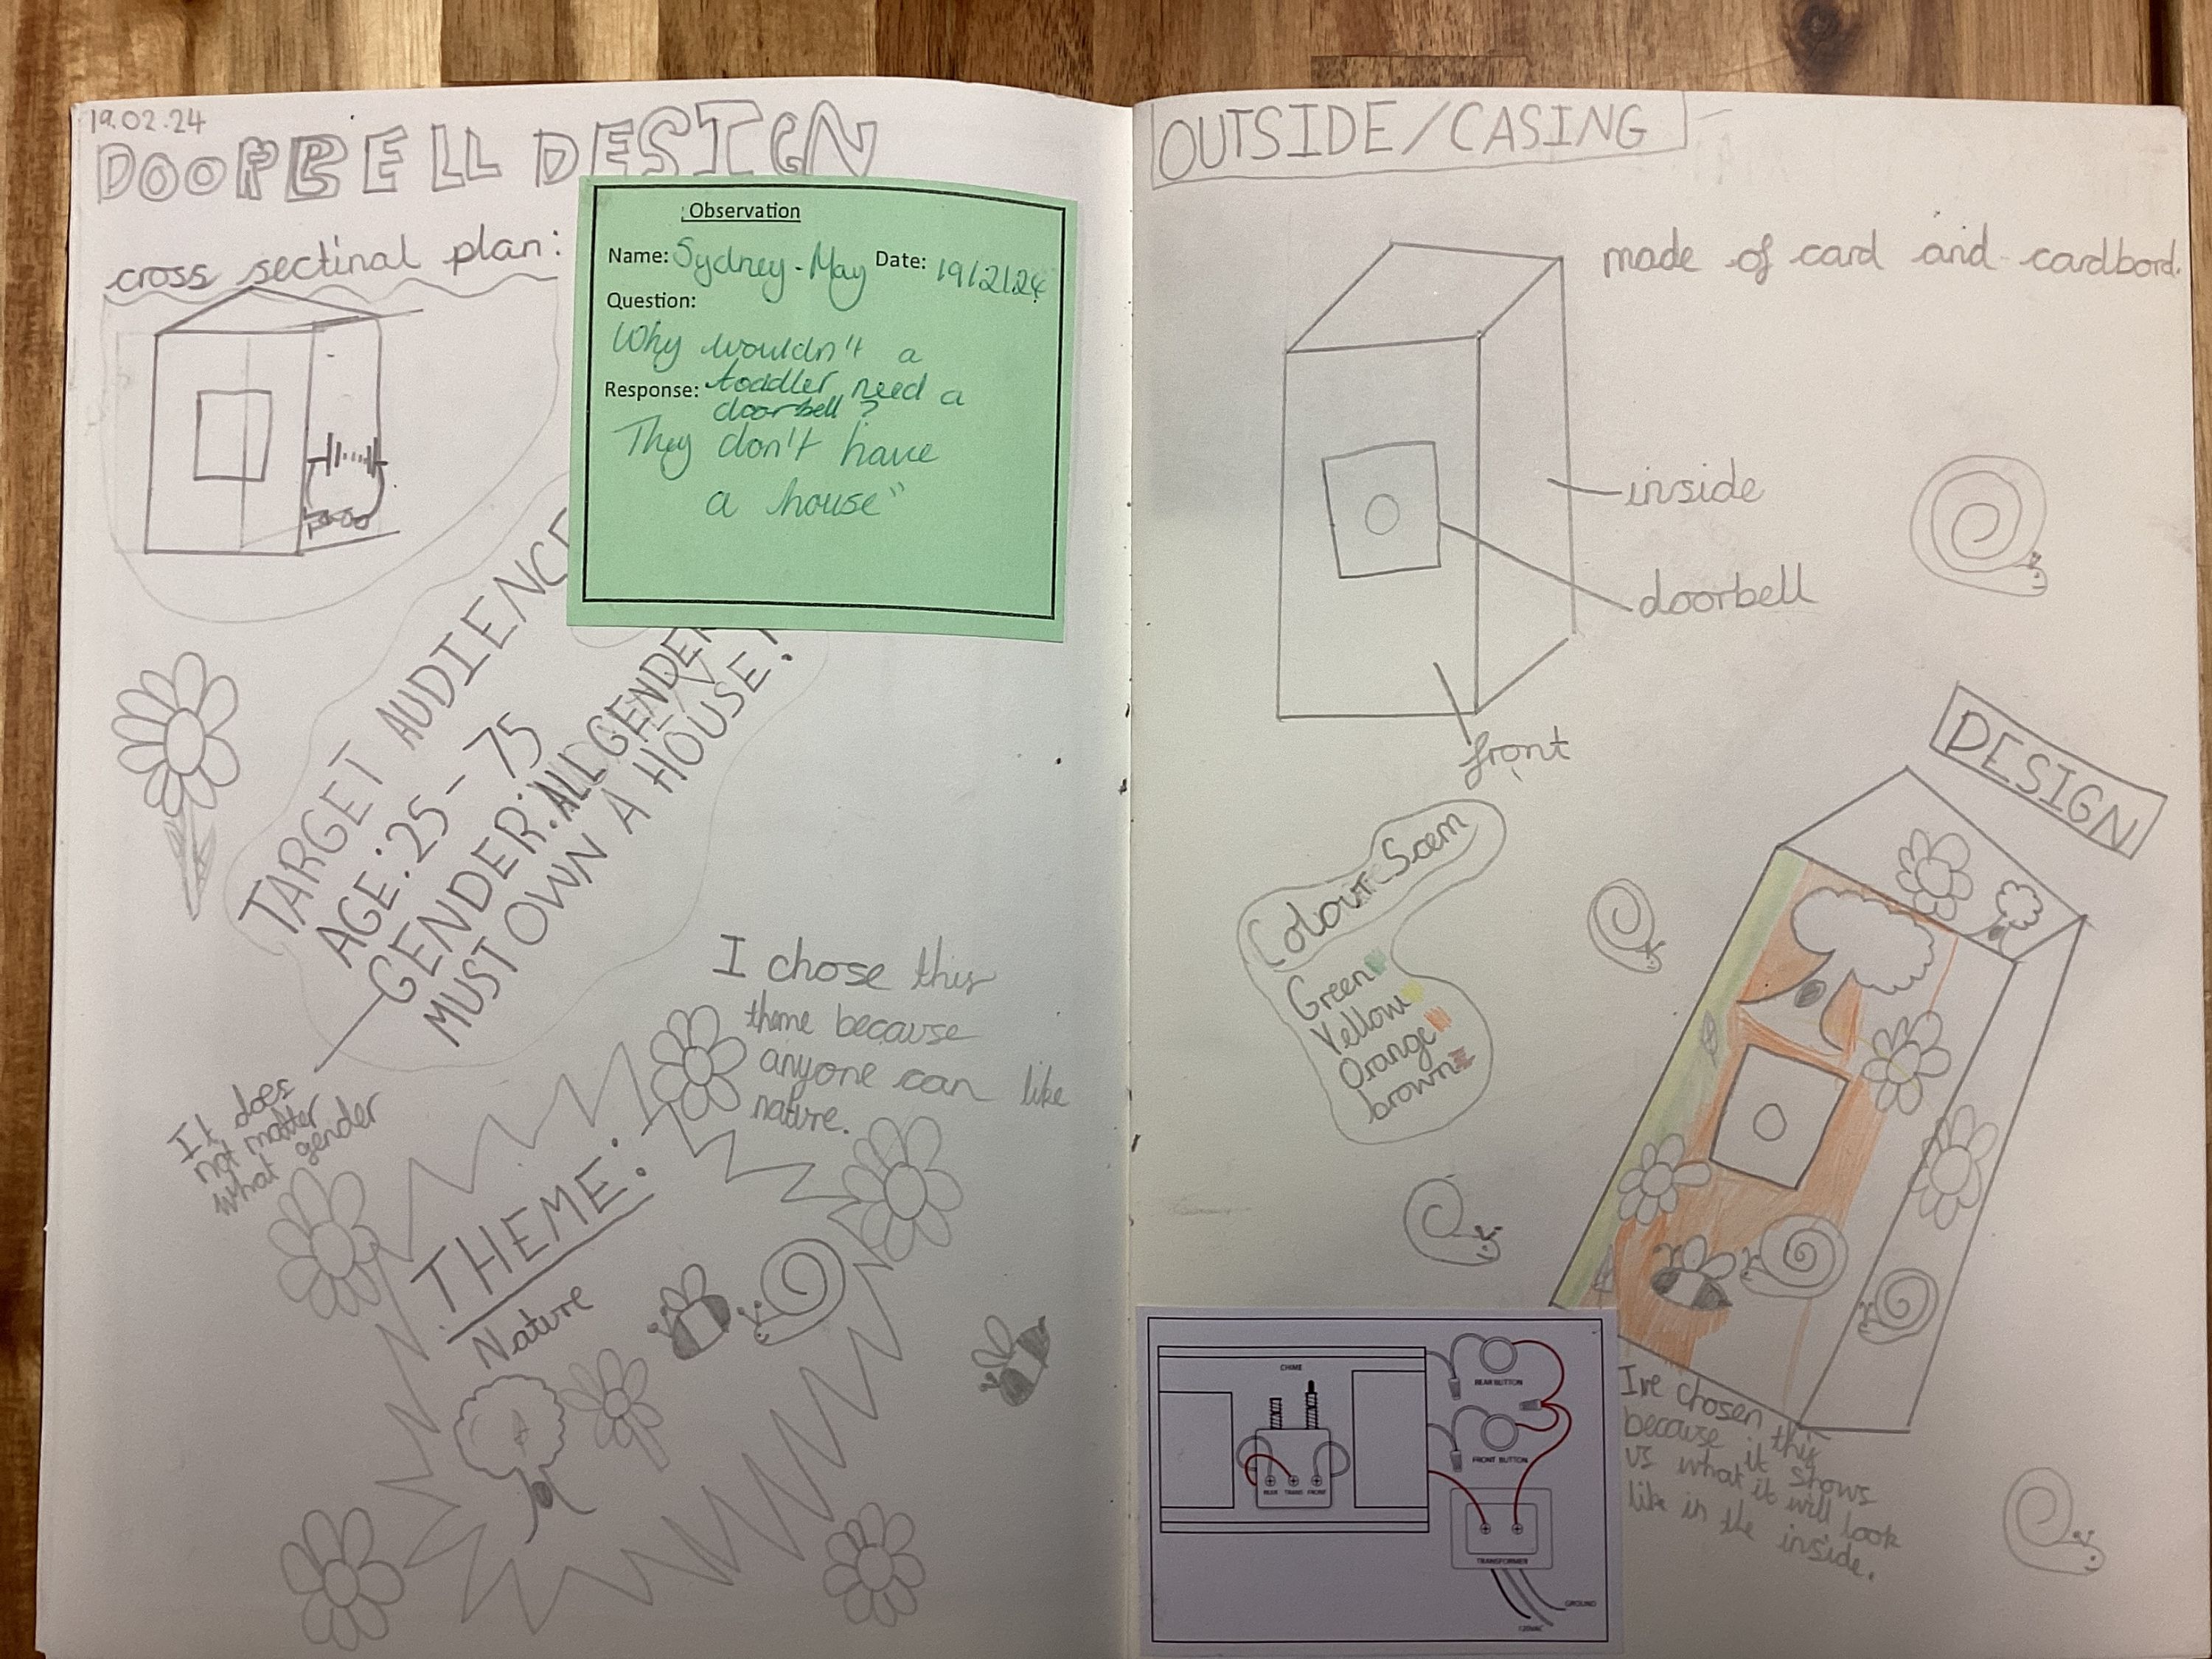 19.02.24
DOORBELL DESIGN
cross sectinal plan:
Observation
Name: Sydney-May Date: 19/2/24
Question:
Why wouldn't a
toddler need a
doorbell?
Response:
They don't have
a house"
TARGET AUDIENCE
AGE: 25-75
GENDER: ALL GENDER
MUST OWN A HOUSE!
It does
not matter
what gender
I chose this
theme because
anyone can like
nature.
THEME:
Nature
OUTSIDE/CASING
made of card and cardbord.
inside
doorbell
front
DESIGN
Colour Scem
Green
Yellow
Orange
brown
I've chosen this
because it shows
us what it will look
like in the inside.
CHIME
REAR BUTTON
FRONT BUTTON
REAR TRANS FRONT
TRANSFORMER
GROUND
120VAC